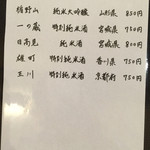 楯野川 純米大吟醸 山形県 850円
一の蔵 特別純米酒 宮城県 750円
日高見 純米酒 宮城県 800円
雄町 特別純米酒 香川県 750円
玉川 特別純米酒 京都府 750円